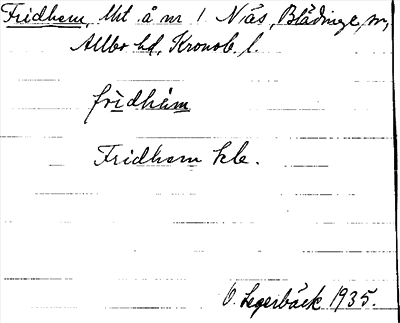 Fridhem, Uht å nr 1 Näs, Blädinge, sn,
Allbo hd, Kronob. l.
frìdhèm
Fridhem kle.
O. Legerbäck 1935.